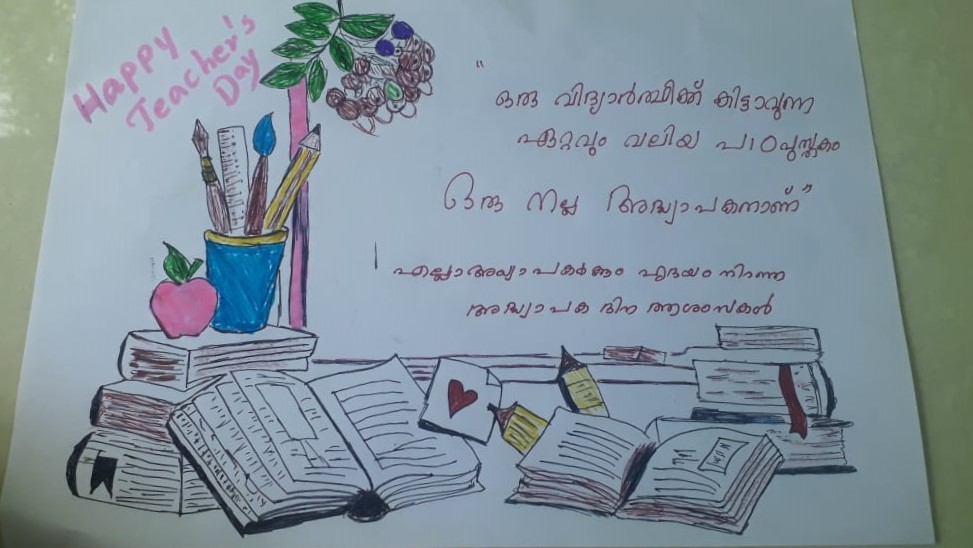 Happy
Teacher's
Day
"ഒരു വിദ്യാർത്ഥിക്ക് കിട്ടാവുന്ന
ഏറ്റവും വലിയ പാഠപുസ്തകം
ഒരു നല്ല അദ്ധ്യാപകനാണ്"
എല്ലാ അധ്യാപകർക്കും ഹൃദയം നിറഞ്ഞ
അദ്ധ്യാപക ദിന ആശംസകൾ